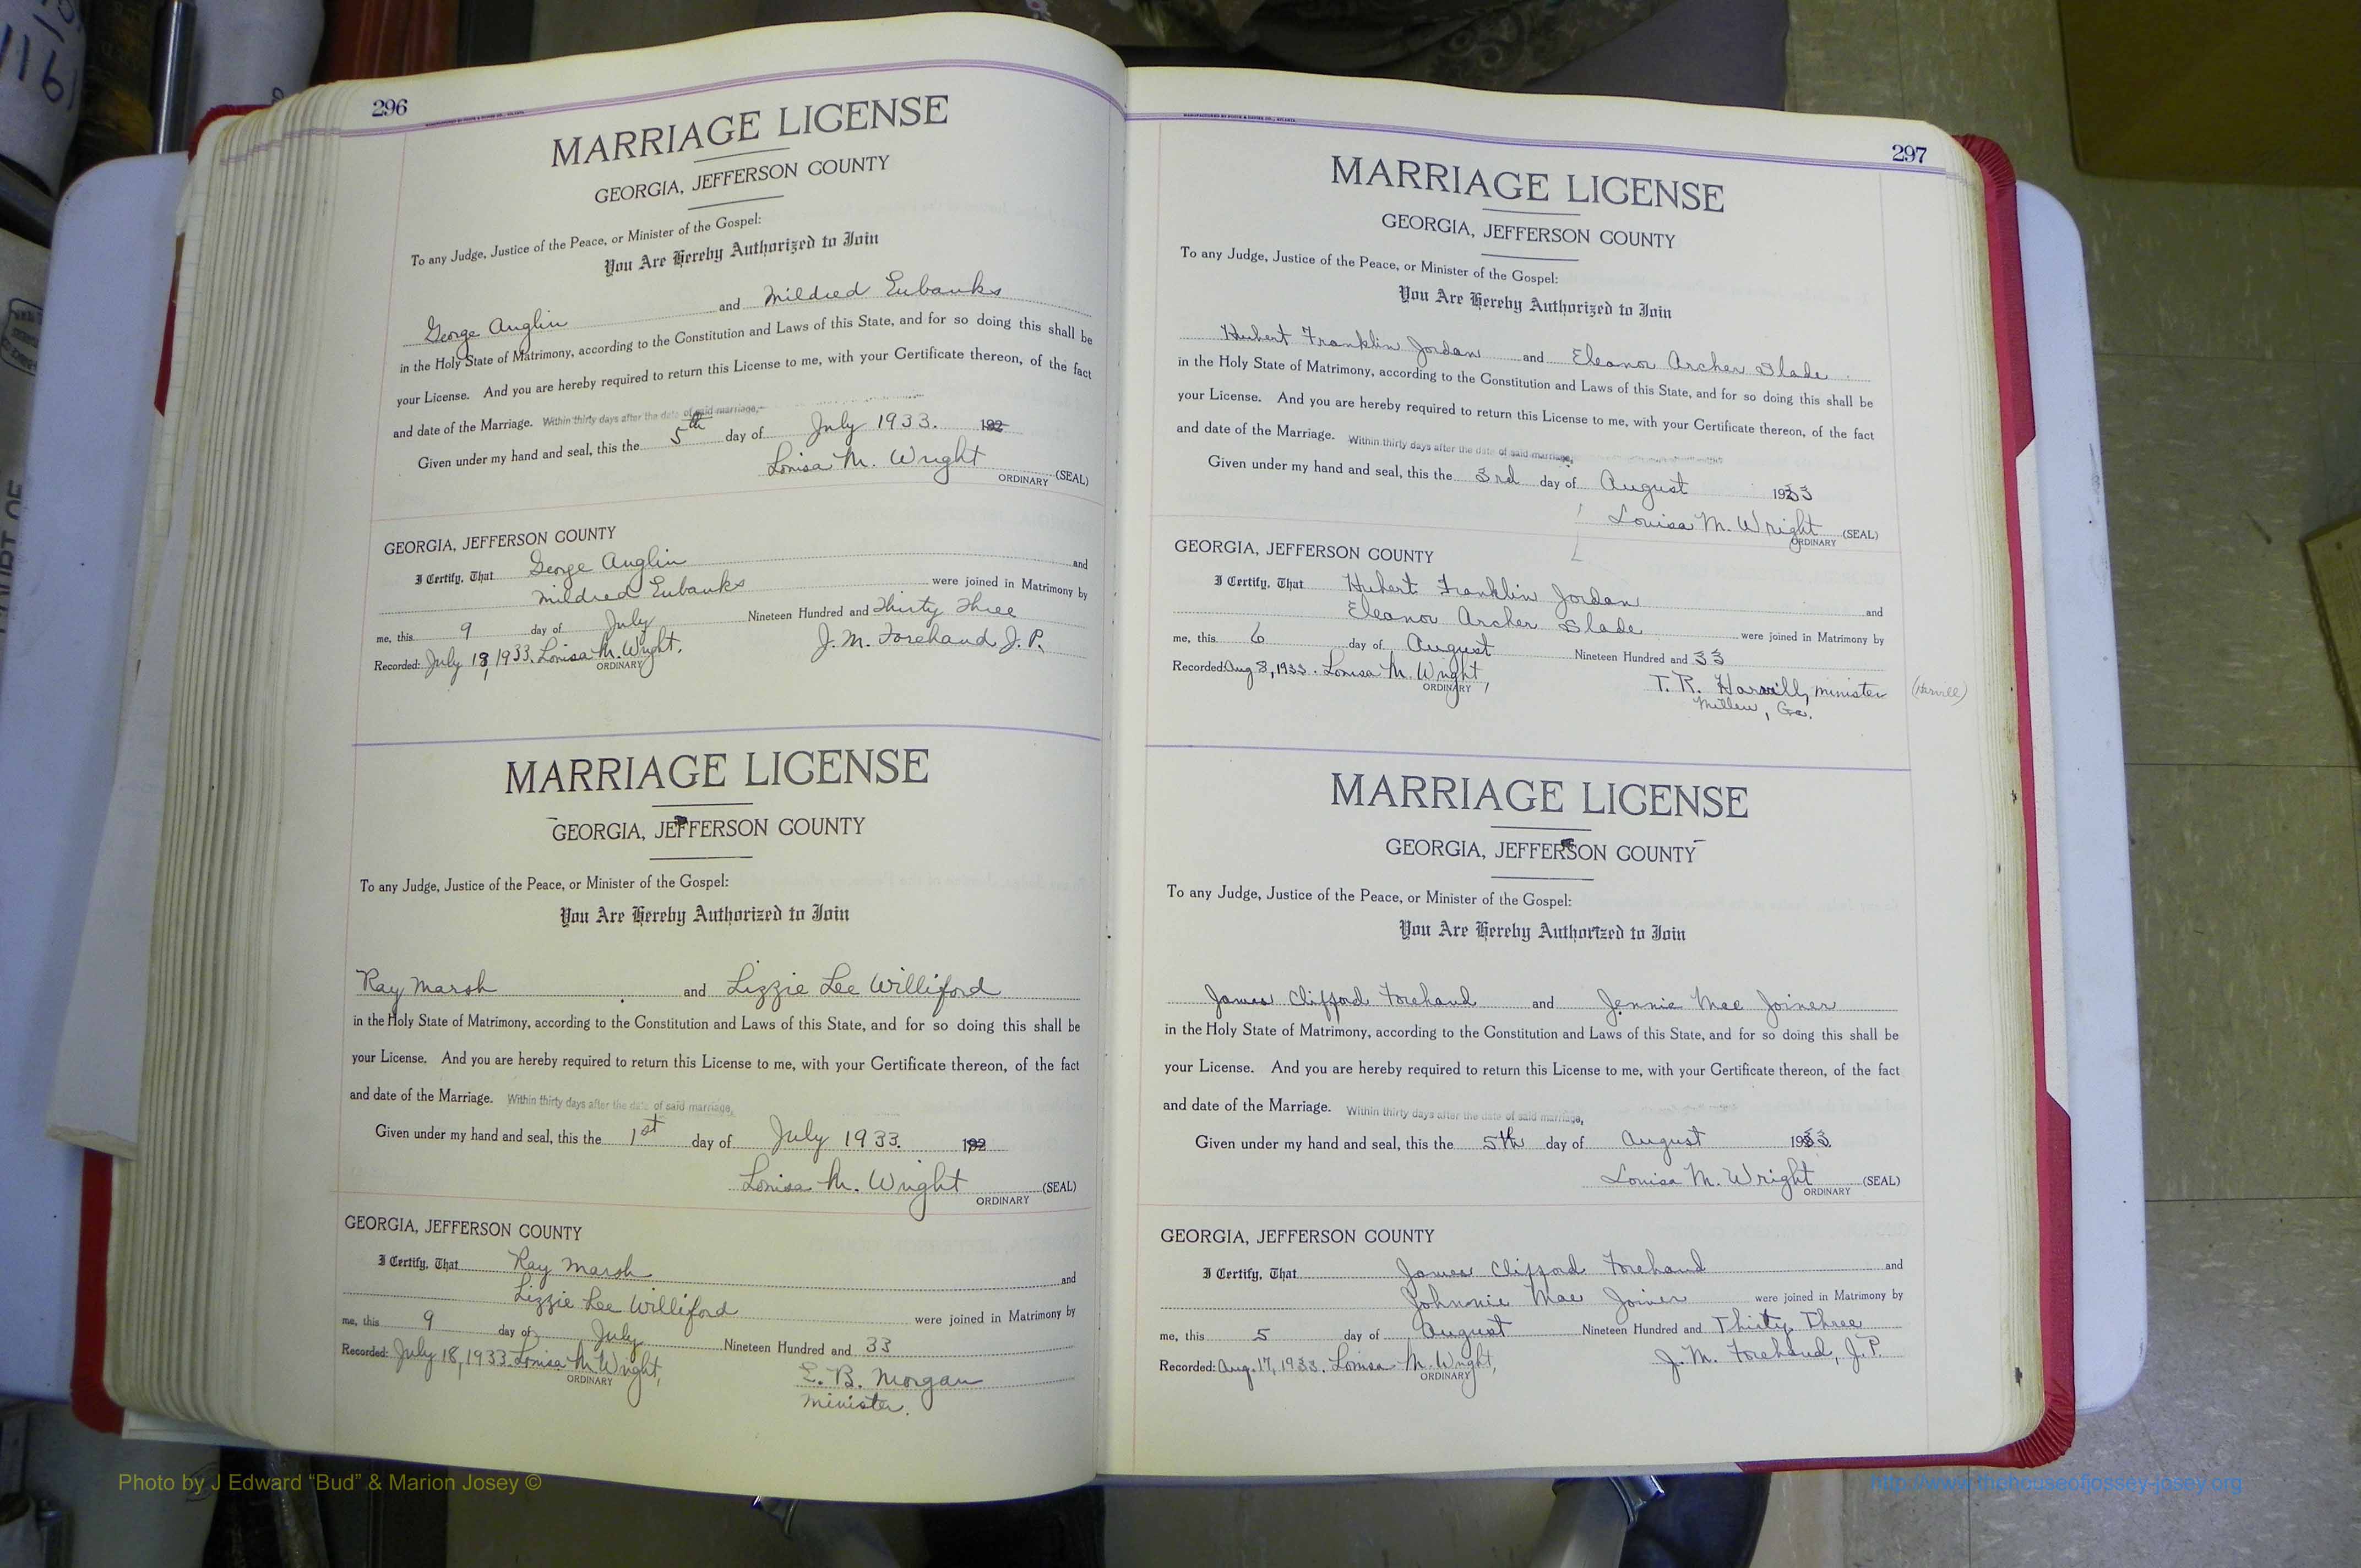 296
MARRIAGE LICENSE
GEORGIA, JEFFERSON COUNTY
To any Judge, Justice of the Peace, or Minister of the Gospel:
You Are Hereby Authorized to Join
George Anglin and Mildred Eubanks
in the Holy State of Matrimony, according to the Constitution and Laws of this State, and for so doing this shall be
your License. And you are hereby required to return this License to me, with your Certificate thereon, of the fact
and date of the Marriage. Within thirty days after the date of said marriage,
Given under my hand and seal, this the 5th day of July 1933. 192
Louisa M. Wright (SEAL)
ORDINARY
GEORGIA, JEFFERSON COUNTY
I Certify, That George Anglin and
Mildred Eubanks were joined in Matrimony by
me, this 9 day of July Nineteen Hundred and Thirty Three
Recorded: July 18, 1933. Louisa M. Wright, J. M. Forehand J. P.
ORDINARY
MARRIAGE LICENSE
GEORGIA, JEFFERSON COUNTY
To any Judge, Justice of the Peace, or Minister of the Gospel:
You Are Hereby Authorized to Join
Ray Marsh and Lizzie Lee Williford
in the Holy State of Matrimony, according to the Constitution and Laws of this State, and for so doing this shall be
your License. And you are hereby required to return this License to me, with your Certificate thereon, of the fact
and date of the Marriage. Within thirty days after the date of said marriage,
Given under my hand and seal, this the 1st day of July 1933. 192
Louisa M. Wright (SEAL)
ORDINARY
GEORGIA, JEFFERSON COUNTY
I Certify, That Ray Marsh and
Lizzie Lee Williford were joined in Matrimony by
me, this 9 day of July Nineteen Hundred and 33
Recorded: July 18, 1933. Louisa M. Wright, E. B. Morgan
ORDINARY
Minister.
297
MARRIAGE LICENSE
GEORGIA, JEFFERSON COUNTY
To any Judge, Justice of the Peace, or Minister of the Gospel:
You Are Hereby Authorized to Join
Hubert Franklin Jordan and Eleanor Archer Slade
in the Holy State of Matrimony, according to the Constitution and Laws of this State, and for so doing this shall be
your License. And you are hereby required to return this License to me, with your Certificate thereon, of the fact
and date of the Marriage. Within thirty days after the date of said marriage,
Given under my hand and seal, this the 3rd day of August 1933
Louisa M. Wright (SEAL)
ORDINARY
GEORGIA, JEFFERSON COUNTY
I Certify, That Hubert Franklin Jordan and
Eleanor Archer Slade were joined in Matrimony by
me, this 6 day of August Nineteen Hundred and 33
Recorded: Aug 8, 1933. Louisa M. Wright, T. R. Harvill, minister (Harvill)
ORDINARY
Millen, Ga.
MARRIAGE LICENSE
GEORGIA, JEFFERSON COUNTY
To any Judge, Justice of the Peace, or Minister of the Gospel:
You Are Hereby Authorized to Join
James Clifford Forehand and Jennie Mae Joiner
in the Holy State of Matrimony, according to the Constitution and Laws of this State, and for so doing this shall be
your License. And you are hereby required to return this License to me, with your Certificate thereon, of the fact
and date of the Marriage. Within thirty days after the date of said marriage,
Given under my hand and seal, this the 5th day of August 1933.
Louisa M. Wright (SEAL)
ORDINARY
GEORGIA, JEFFERSON COUNTY
I Certify, That James Clifford Forehand and
Johnnie Mae Joiner were joined in Matrimony by
me, this 5 day of August Nineteen Hundred and Thirty Three
Recorded: Aug. 17, 1933. Louisa M. Wright, J. M. Forehand, J. P.
ORDINARY
Photo by J Edward “Bud” & Marion Josey ©
http://www.thehouseofjossey-josey.org